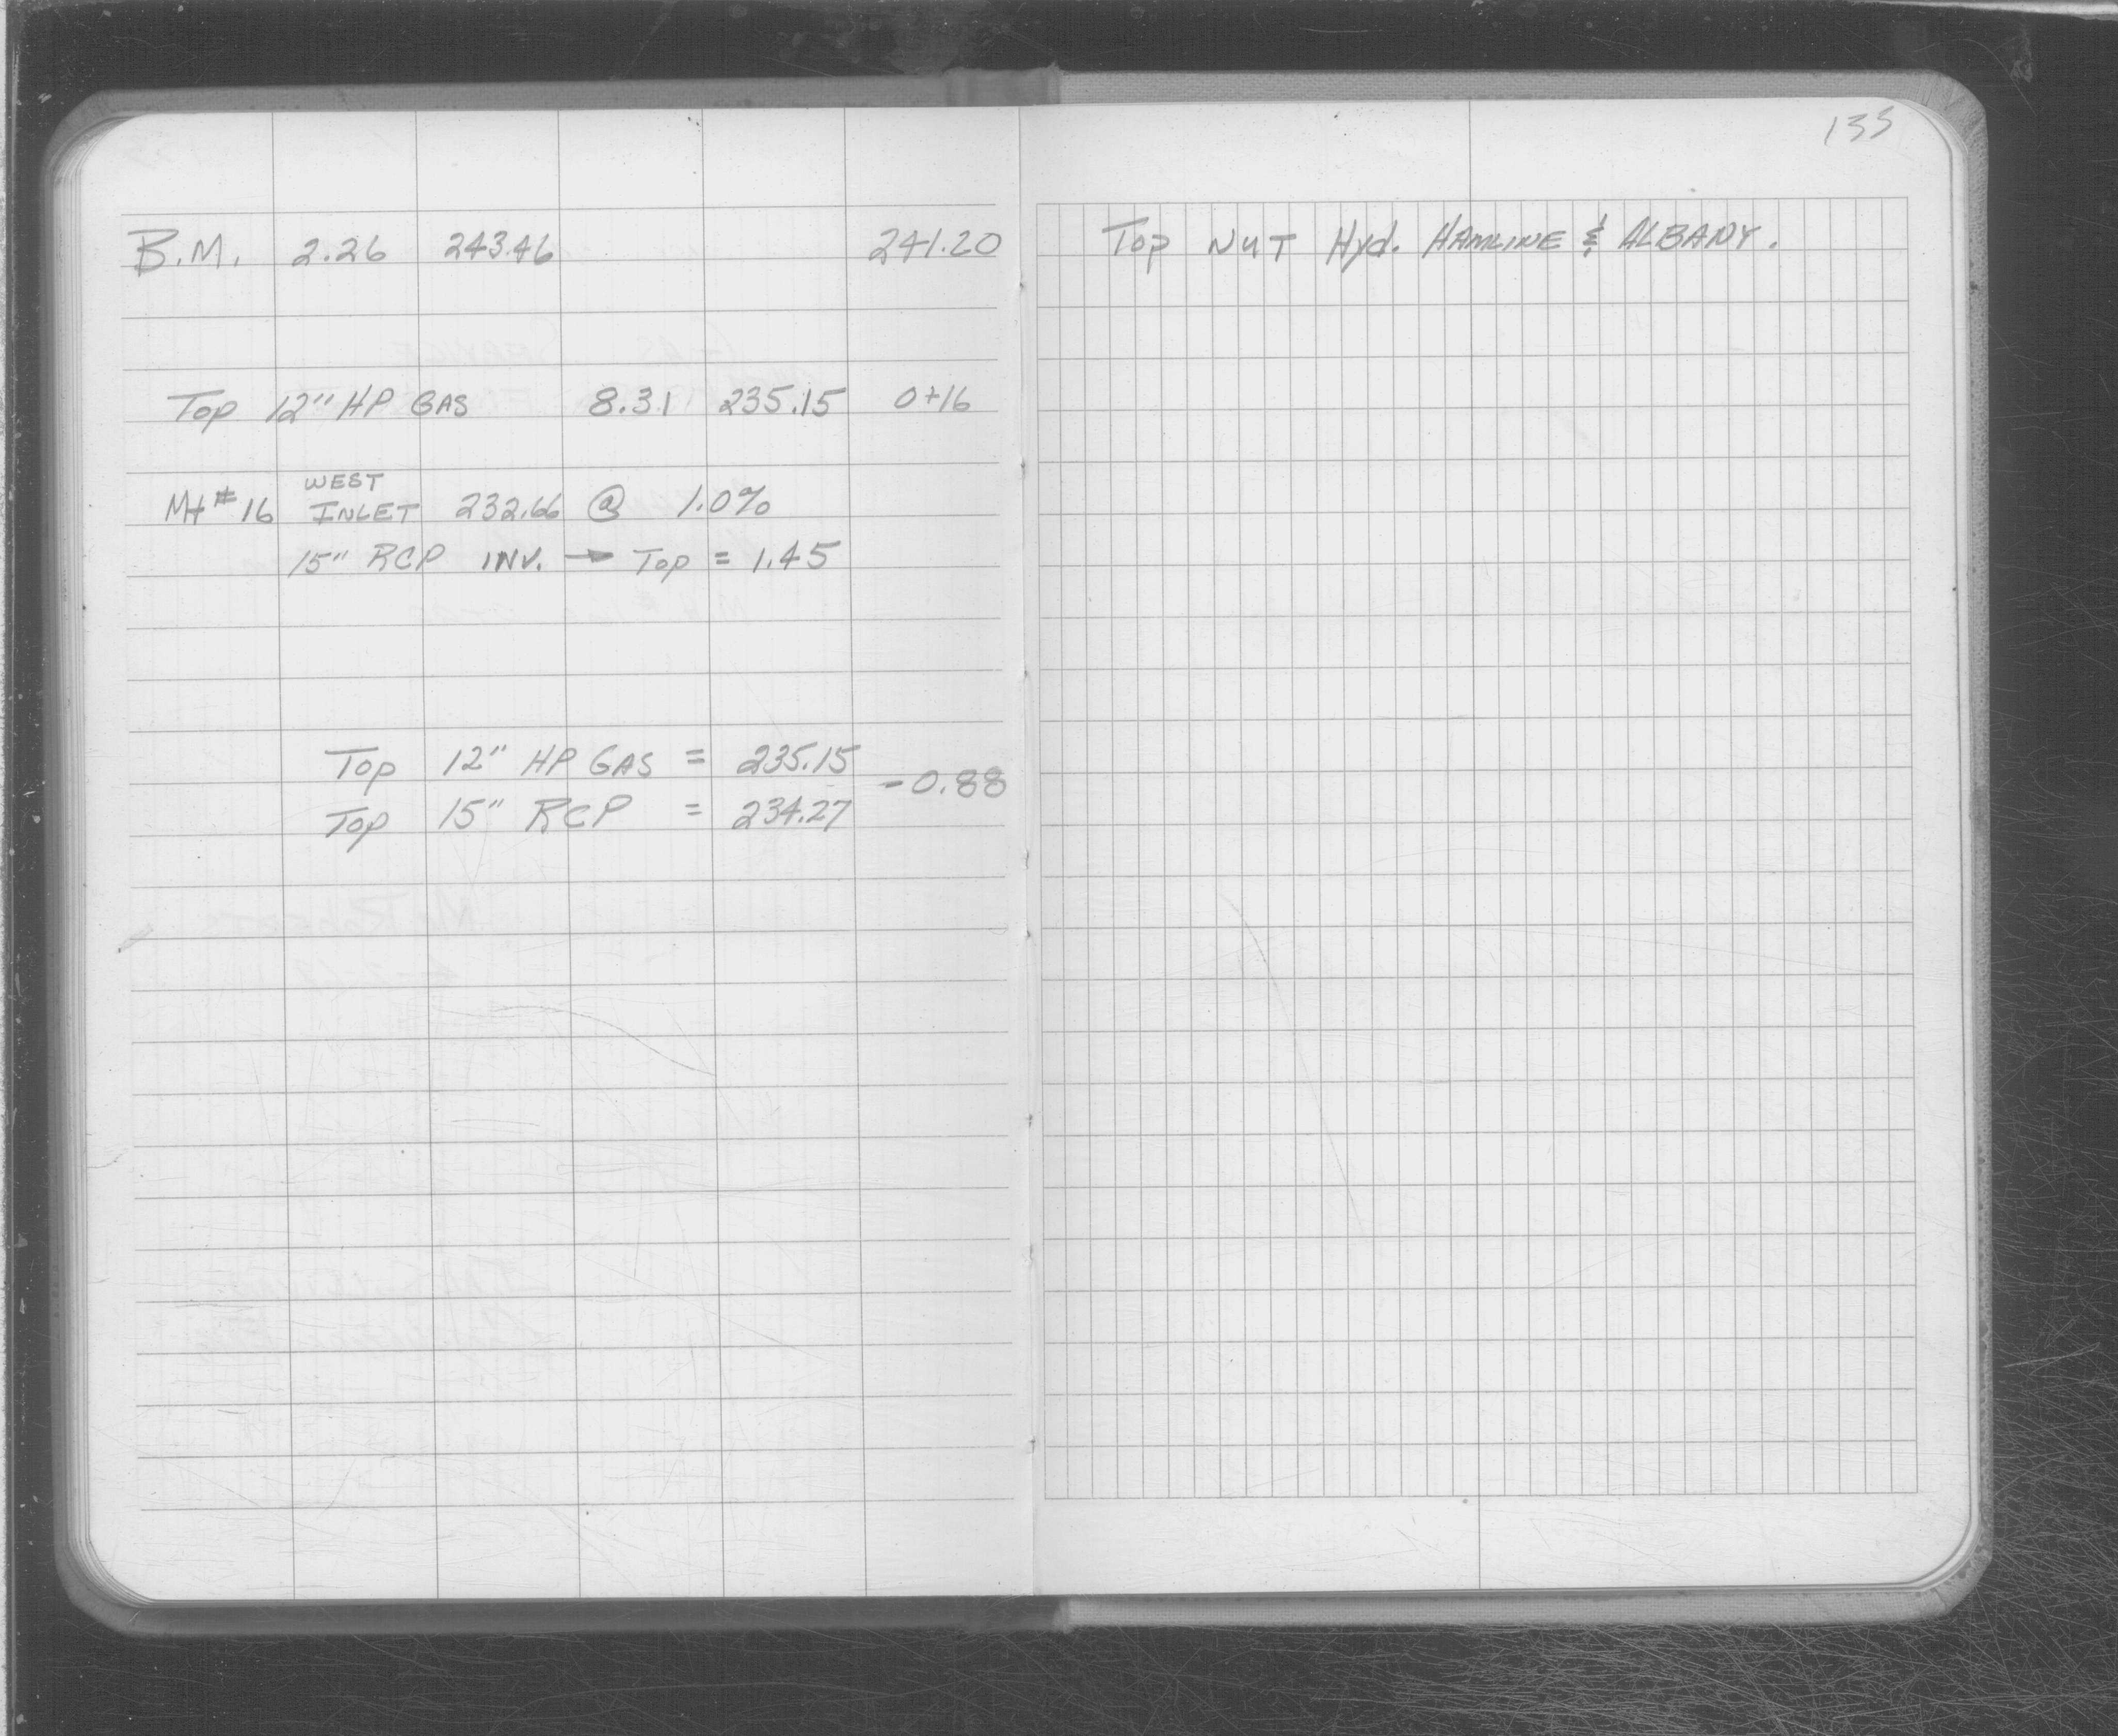 135
B.M. 2.26 243.46 241.20
Top 12" HP GAS 8.31 235.15 0+16
WEST
MH #16 INLET 232.66 @ 1.0%
15" RCP INV. → Top = 1.45
Top 12" HP GAS = 235.15
-0.88
Top 15" RCP = 234.27
Top NUT Hyd. HAMLINE & ALBANY.